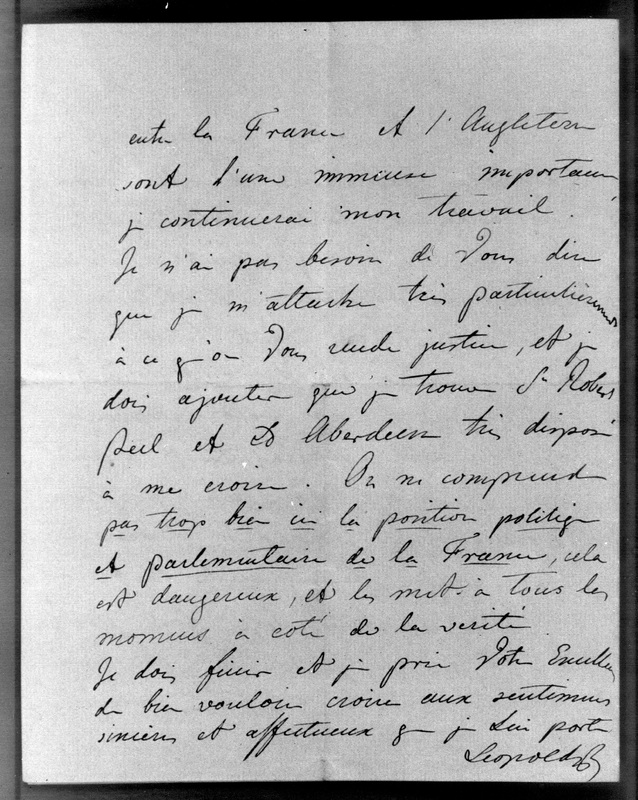 entre la France et l'Angleterre
sont d'une immense importance
je continuerai mon travail.
Je n'ai pas besoin de Vous dire
que je m'attache très particulièrement
à ce qu'on Vous rende justice, et je
dois ajouter que je trouve Sr Robert
Peel et Ld Aberdeen très disposé
à me croire. On ne comprend
pas trop bien ici la position politique
et parlementaire de la France, cela
est dangereux, et les met à tous les
momens à coté de la verité.
Je dois finir et je prie Votre Excellence
de bien vouloir croire aux sentimens
sincères et affectueux que je Lui porte
Leopold R